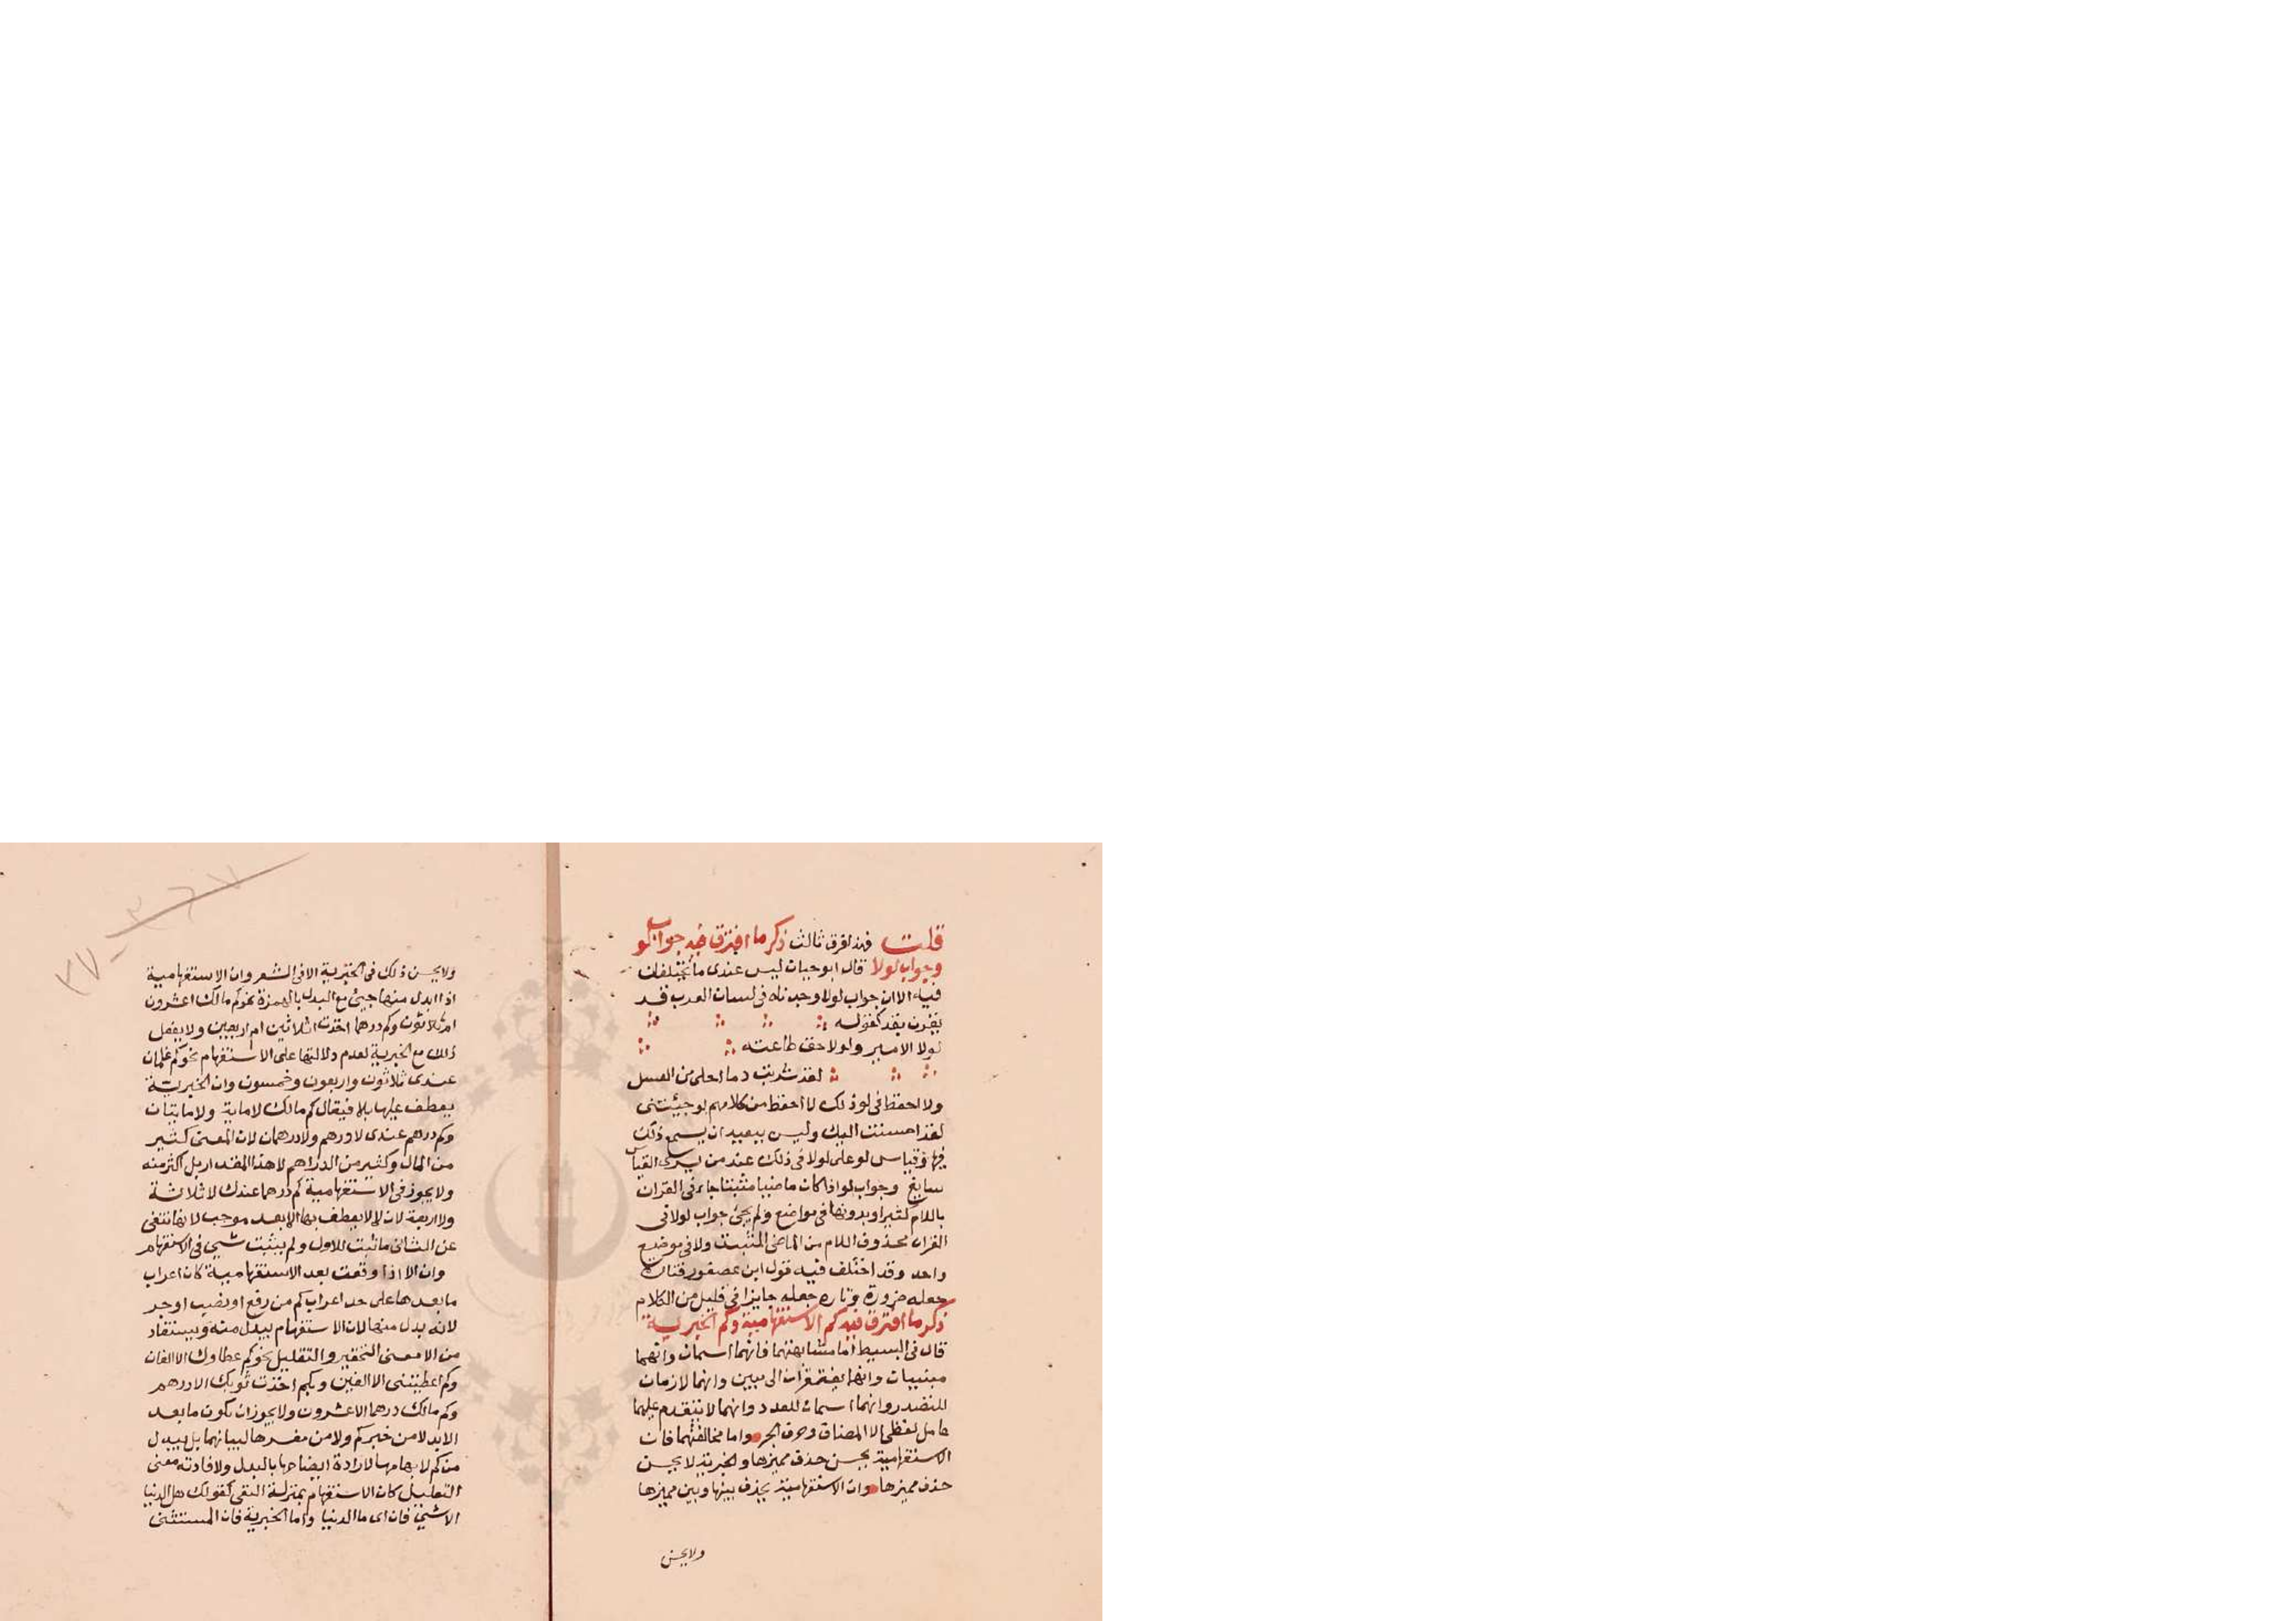 قلت فهذا فرق ثالث ذكر ما افترق فيه جواب لو
وجواب لولا قال ابو حيان ليس عندى ما يختلفان
فيه الا ان جواب لولا وجدناه فى لسان العرب قد
يقرن بقد كقوله
لولا الامير ولولا حق طاعته
لقد شربت دما احلى من العسل
ولا احفظ فى لو ذلك لا احفظ من كلامهم لو جيئتنى
لقد احسنت اليك وليس ببعيد ان يسمع ذلك
فيها وقياس لو على لولا فى ذلك عند من يرى القياس
سايغ وجواب لو اذا كان ماضيا مثبتا جاء فى القران
باللام كثيرا وبدونها فى مواضع ولم يجئ جواب لولا فى
القران محذوف اللام من الماضى المثبت ولا فى موضع
واحد وقد اختلف فيه قول ابن عصفور فتارة
جعله ضرورة وتاره جعله جايزا فى قليل من الكلام
ذكر ما افترق فيه كم الاستفهامية وكم الخبرية
قال فى البسيط اما مشابهتهما فانهما اسمان وانهما
مبنيان وانهما يفتقران الى مبين وانهما لازمان
للتصدر وانهما اسمان للعدد وانهما لا يتقدم عليهما
عامل لفظى الا المضاف وحرف الجر واما مخالفتهما فان
الاستفهامية يحسن حذف مميزها والخبرية لا يحسن
حذف مميزها وان الاستفهامية يحذف بينها وبين مميزها
ولا يحسن
ولا يحسن ذلك فى الخبرية الا فى الشعر وان الاستفهامية
اذا ابدل منها جيئ مع البدل بالهمزة نحو كم مالك اعشرون
ام ثلاثون وكم درهما اخذت اثلاثين ام اربعين ولا يفعل
ذلك مع الخبرية لعدم دلالتها على الاستفهام نحو كم غلمان
عندى ثلاثون واربعون وخمسون وان الخبرية
يعطف عليها بلا فيقال كم مالك لا ماية ولا مايتان
وكم درهم عندى لا درهم ولا درهمان لان المعنى كثير
من المال وكثير من الدراهم لا هذا المقدار بل اكثر منه
ولا يجوز فى الاستفهامية كم درهما عندك لا ثلاثة
ولا اربعة لان لا لا يعطف بها الا بعد موجب لانها تنفى
عن الثانى ما ثبت للاول ولم يثبت شيى فى الاستفهام
وان الا اذا وقعت بعد الاستفهامية كان اعراب
ما بعدها على حد اعراب كم من رفع او نصب او جر
لانه بدل منها لان الاستفهام يبدل منه ويستفاد
من الا معنى التحقير والتقليل نحو كم عطاوك الا الفان
وكم اعطيتنى الا الفين وبكم اخذت ثوبك الا درهم
وكم مالك درهما الا عشرون ولا يجوز ان يكون ما بعد
الا بدلا من خبر كم ولا من مفسرها لبيانهما بل يبدل
من كم لابهامها لارادة ايضاحها بالبدل ولافادته معنى
التقليل كان الاستفهام بمنزلة النفى كقولك هل الدنيا
الا شيئ فان اى ما الدنيا واما الخبرية فان المستثنى